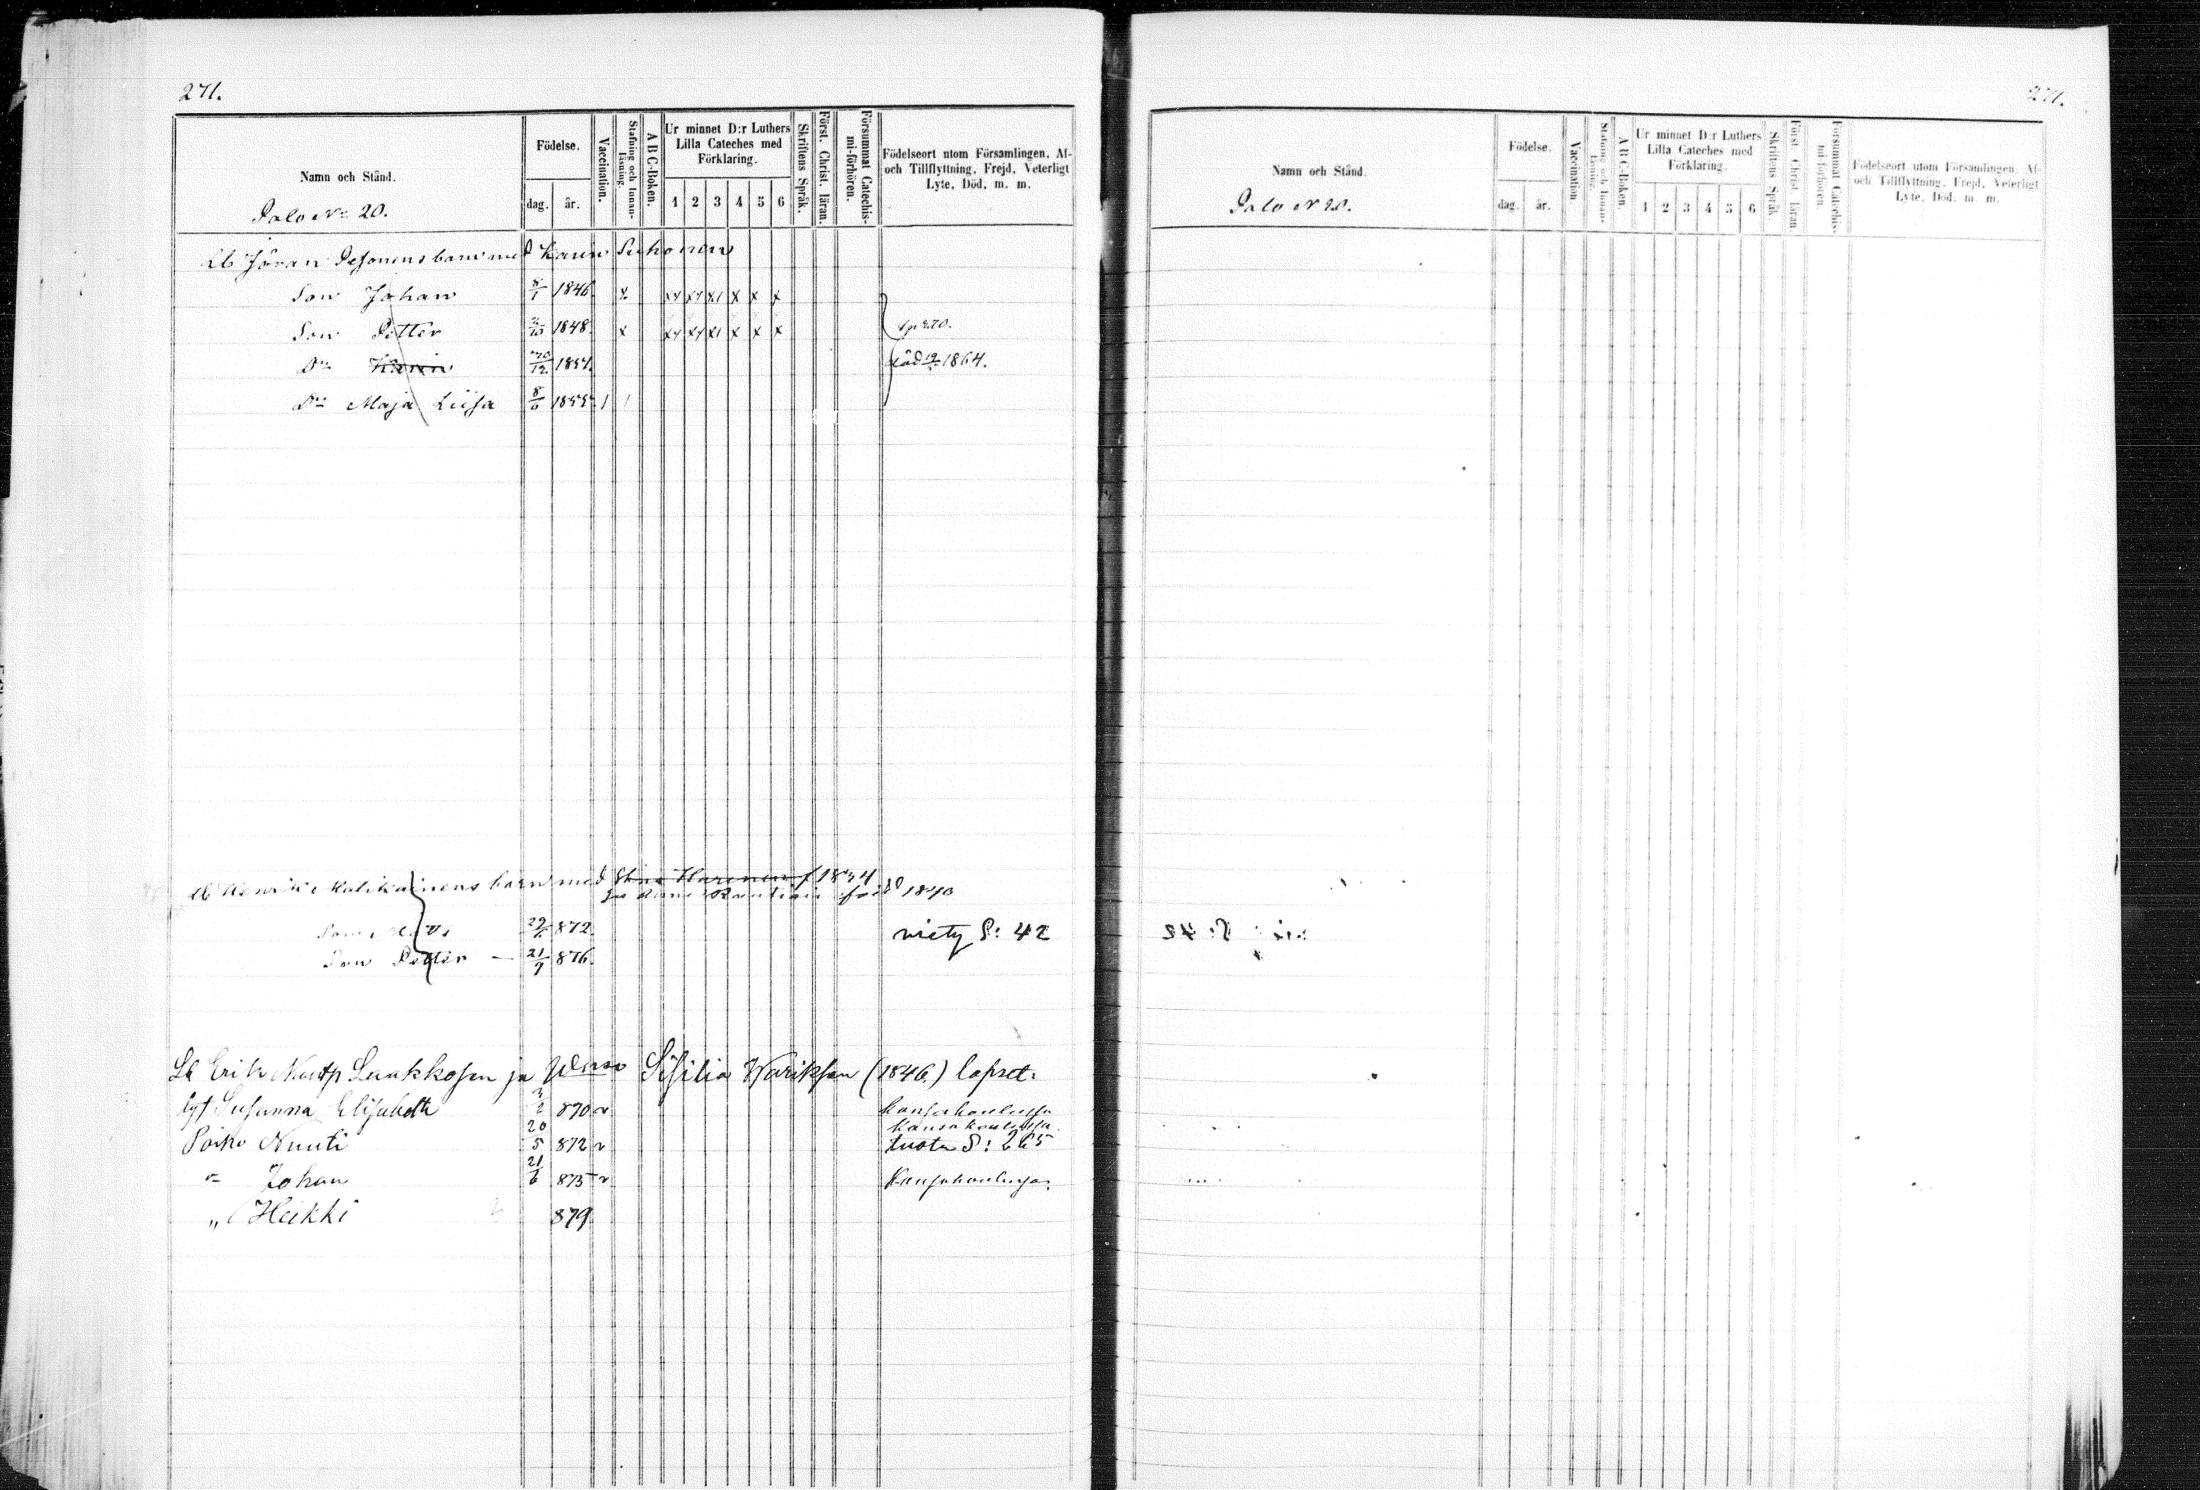 271.
Namn och Stånd.
Födelse.
dag. år.
Vaccination.
Stafning och Innan-läsning.
A B C-Boken.
Ur minnet D:r Luthers Lilla Cateches med Förklaring.
1 2 3 4 5 6
Skriftens Språk.
Först. Christ. läran.
Försummat Catechis-mi-förhören.
Födelseort utom Församlingen, Af-
och Tillflyttning, Frejd, Veterligt
Lyte, Död, m. m.
Palo No 20.
Lb Jöran Pesonens barn med Karin Suhonen
Son Johan 8/1 1846. x x x x
Son Petter 1848. x x x x p 270.
Dr Karin 1854. död 1864.
Dr Maja Liisa 8/6 1855. 1
Henrik Malikainens barn med Stina 1834
Anna Rautiain född 1840
Son 872. viety S: 42
Son Petter — 21/9 876.
Lb Erik Laakkosen ja Sisilia Wariksen (1846.) lapset.
tyt Susanna Elisabeth 2 870 v Kansakoulussa
Kansakoulussa.
Poika Nuuti 20/5 872 v tuota S: 265
" Johan 21/6 875 v Kansakoulussa.
" Heikki 879.
271.
Namn och Stånd.
Födelse.
dag. år.
Vaccination.
Stafning och Innan-läsning.
A B C-Boken.
Ur minnet D:r Luthers Lilla Cateches med Förklaring.
1 2 3 4 5 6
Skriftens Språk.
Först. Christ. läran
Försummat Catechis-mi-förhören.
Födelseort utom Församlingen, Af-
och Tillflyttning, Frejd, Veterligt
Lyte, Död, m. m.
Palo N 20.